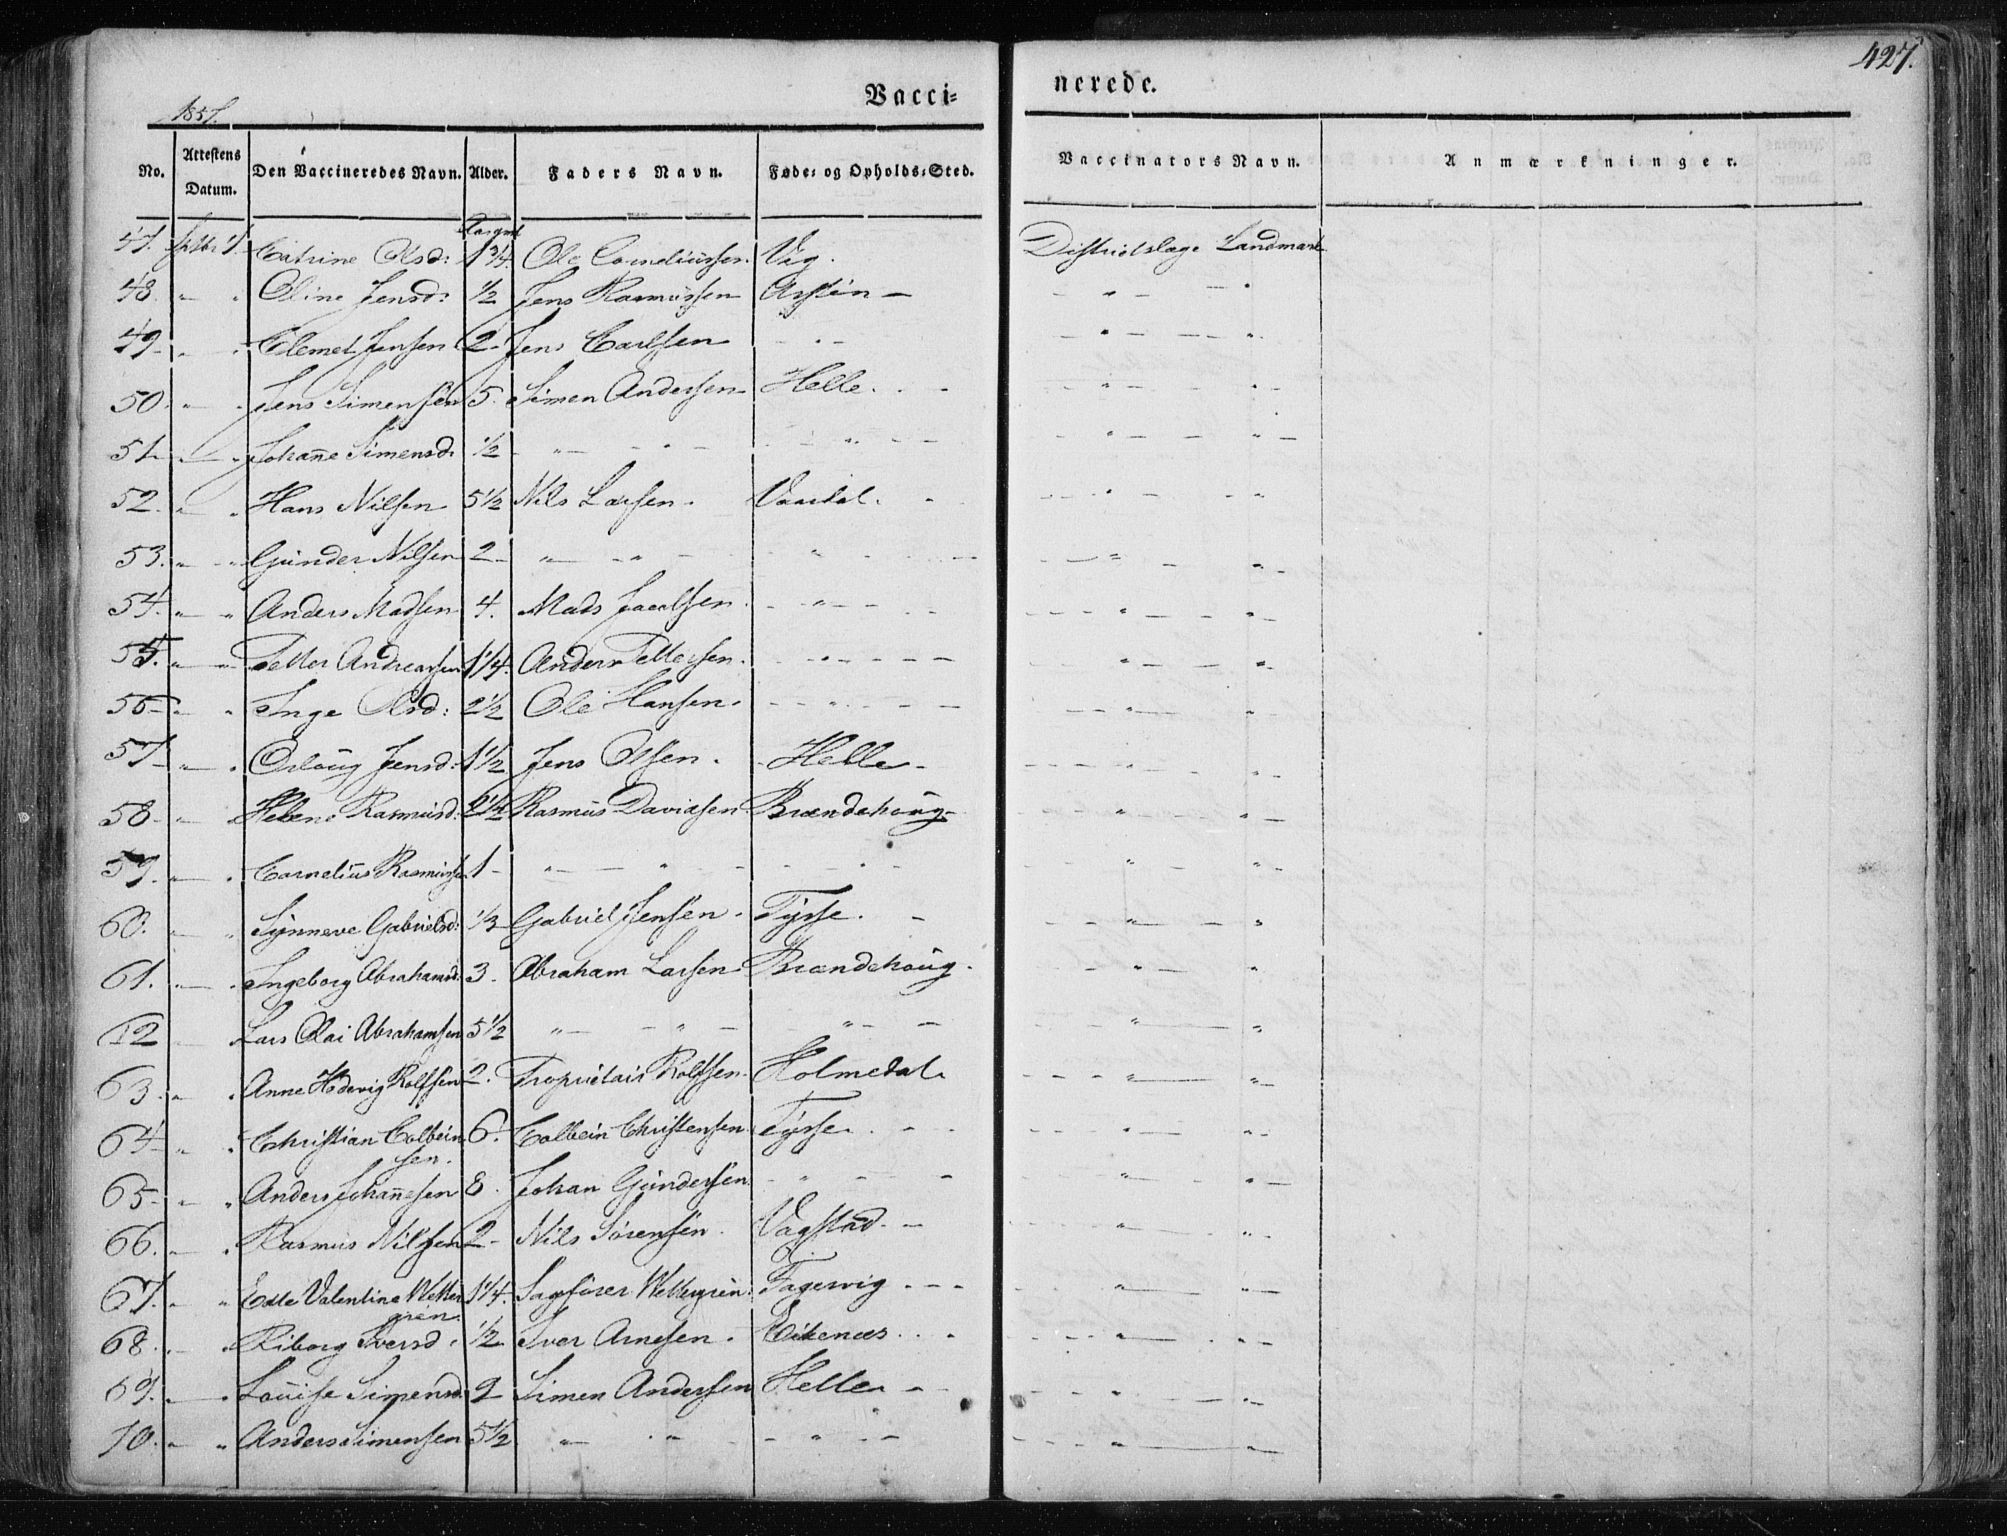 427.
Vacci= nerede.
1857.
No. Attestens Datum. Den Vaccineredes Navn. Alder. Faders Navn. Føde= og Opholds=Sted. Vaccinators Navn. Anmærkninger.
47. Catrine Olsd: 1 3/4. Ole Corneliussen. Vig. Distriktslæge Landmark
48. " " Oline Jensd: 1/2 Jens Rasmussen - " - "
49. " " Clemet Jensen 2. Jens Carlsen - " - - " - "
50. " " Jens Simensen 5. Simen Andersen Helle. - " - "
51. " " Johan̄e Simensd: 1/2 " - " - " - - " - "
52. " " Hans Nilsen 5 1/2 Nils Larsen. - " - "
53. " " Gunder Nilsen 2 - " - " - " - " - "
54. " " Anders Madsen 4. Mads - " - - " - "
55. " " Petter Andreassen 1 1/4. Anders Pettersen. - " - - " - "
56 " " Inge Olsd: 2 1/2 Ole Hansen. - " - - " - "
57 " " Jensd: 1 1/2 Jens Olsen. Helle - " - "
58 " " Helene Rasmusd: 2 1/2 Rasmus Davidsen Brændehoug - " - "
59. " " Cornelius Rasmussen 1 - " - " - " - - " - "
60. " " Synneve Gabrielsd: 1/3 Gabriel Jensen. Tysse. - " - "
61. " " Ingeborg Abrahamsd: 3. Abraham Larsen Brændehoug. - " - "
62 Lars Olai Abrahamsen 5 1/2 " - " - " - - " - "
63. " " Anne Hedevig Rolfsen 2. Proprietair Rolfsen. Holmedal - " - "
64 " " Christian Colbein 6. Colbein Christensen Tysse. - " - "
sen.
65 " " Anders Johan̄esen 8. Johan Gundersen - " - - " - "
66. " " Rasmus Nilsen 2 - Nils Sørensen. Vagstad. - " - "
67. " " Edle Valentine Wetter 1 1/4. Sagfører Wettergren. Fagervig - " - "
gren.
68. " " Riborg Iversd: 1/2 Iver Arnesen. Eikenæs. - " - "
69. " " Louise Simensd: 2 Simen Andersen Helle - " - "
70. " " Anders Simensen 5 1/2 " - " - " - - " - "